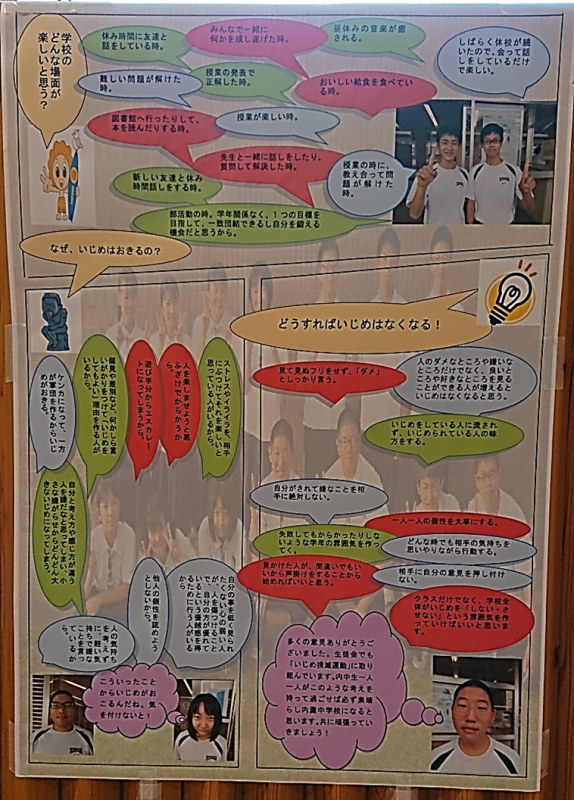 学校の
どんな場面が
楽しいと思う？
休み時間に友達と
話をしている時。
みんなで一緒に
何かを成し遂げた時。
昼休みの音楽が癒
される。
しばらく休校が続
いたので、会って話
しをしているだけ
で楽しい。
難しい問題が解けた
時。
授業の発表で
正解した時。
おいしい給食を食べてい
る時。
図書館へ行ったりして、
本を読んだりする時。
授業が楽しい時。
先生と一緒に話しをしたり、
質問して解決した時。
授業の時に、
教え合って問
題が解けた時。
新しい友達と休み
時間話しをする時。
部活動の時。学年関係なく、１つの目標を
目指して、一致団結できるし自分を鍛える
機会だと思うから。
なぜ、いじめはおきるの？
ストレスやイライラを、相手
にぶつけてそれを楽しいと
思っている人がいるから。
人を楽しませようと思
ふざけてからかうか
ら。
遊び半分からエスカレー
トになってしまうから。
偏見や差別など、何かしら言
いがかりをつけて「いじめを
してもよい」理由を作る人が
いるから。
ケンカになって、一方
が軍団を作るからいじ
めがおきる。
自分と考え方や感じ方が違う
人を嫌だなと思ってしまい、小
さな嫌がらせからどんどん、大
きないじめになってしまう。
自分の事を低く見られ
たくない心の弱い人
が、人を傷つけること
で、自分の方が優れて
いるという優越感を得
るために行う人がいる
から
他人の個性を認めよう
としないから。
人の気持ち
を考えず
に、軽い気
持ちで嫌な
ことを言っ
ているから。
こういったこと
からいじめがお
こるんだね。気
を付けないと！
どうすればいじめはなくなる！
見て見ぬフリをせず、「ダメ」
としっかり言う。
人のダメなところや嫌いな
ところだけでなく、良いと
ころや好きなところを見る
ことができる人が増えると
いじめはなくなると思う。
いじめをしている人に流さ
れず、いじめられている人の味
方をする。
自分がされて嫌なことを相
手に絶対しない。
一人一人の個性を大事にする。
失敗してもからかったりしな
いような学年の雰囲気を作っ
てく。
どんな時でも相手の気持ちを
思いやりながら行動する。
見かけた人が、間違いでもい
いから声掛けをすることから
始めればいいと思う。
相手に自分の意見を押し付け
ない。
クラスだけでなく、学校全
体がいじめを「しない・さ
せない」という雰囲気を作
っていけばいいと思いま
す。
多くの意見ありがとうご
ざいました。生徒会でも
「いじめ撲滅運動」に取り
組んでいます。内中生一人
一人がこのような考えを
持って過ごせば必ず素晴
らし内灘中学校になると
思います。共に頑張ってい
きましょう！